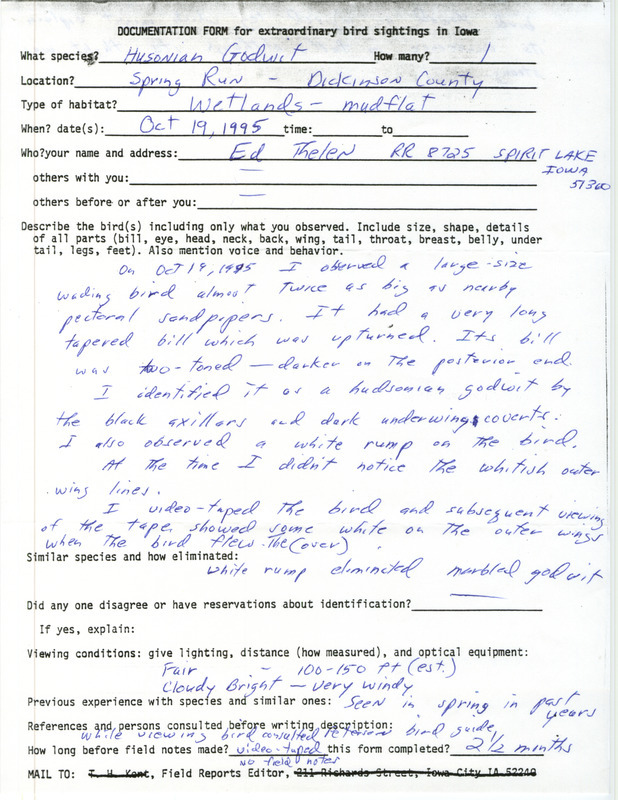 DOCUMENTATION FORM for extraordinary bird sightings in Iowa
What species? Husonian Godwit How many? 1
Location? Spring Run - Dickinson County
Type of habitat? Wetlands - mudflat
When? date(s): Oct 19, 1995 time: to
Who?your name and address: Ed Thelen RR 8725 SPIRIT LAKE
IOWA
51360
others with you: —
others before or after you: —
Describe the bird(s) including only what you observed. Include size, shape, details
of all parts (bill, eye, head, neck, back, wing, tail, throat, breast, belly, under
tail, legs, feet). Also mention voice and behavior.
On Oct 19, 1995 I observed a large-size
wading bird almost twice as big as nearby
pectoral sandpipers. It had a very long
tapered bill which was upturned. Its bill
was two-toned — darker on the posterior end.
I identified it as a hudsonian godwit by
the black axillars and dark underwing coverts.
I also observed a white rump on the bird.
At the time I didn't notice the whitish outer
wing lines.
I video-taped the bird and subsequent viewing
of the tape showed some white on the outer wings
when the bird flew. The (over)
Similar species and how eliminated:
white rump eliminated marbled godwit
Did any one disagree or have reservations about identification?
If yes, explain:
Viewing conditions: give lighting, distance (how measured), and optical equipment:
Fair - 100-150 ft (est.)
Cloudy Bright — very windy
Previous experience with species and similar ones: Seen in spring in past
years
References and persons consulted before writing description:
while viewing bird consulted Peterson bird guide
How long before field notes made? video-taped this form completed? 2 1/2 months
no field notes
MAIL TO: T. H. Kent, Field Reports Editor, 211 Richards Street, Iowa City IA 52240